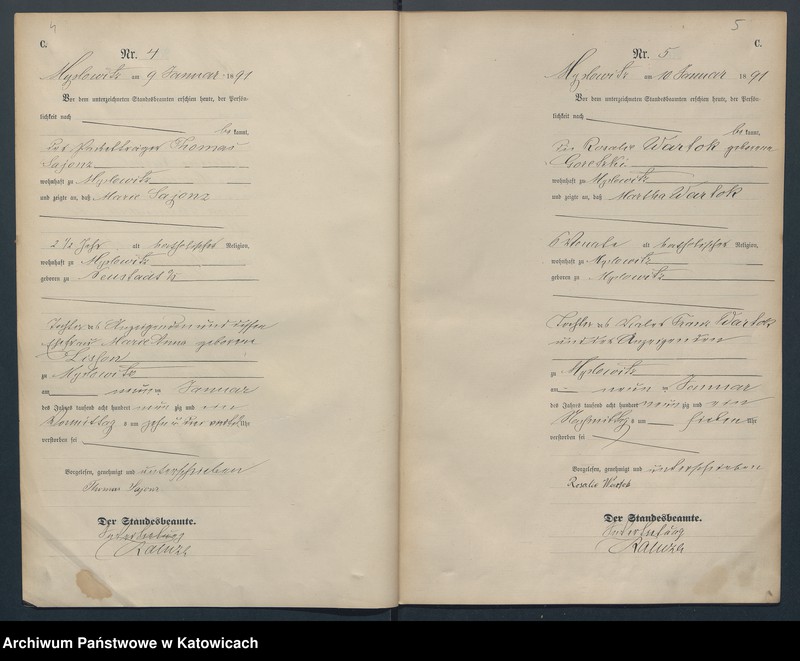 4
C.
Nr. 4
Myslowitz am 9 Januar 1891
Vor dem unterzeichneten Standesbeamten erschien heute, der Persön-
lichkeit nach
be kannt,
Der Thomas
Sajonz
wohnhaft zu Myslowitz
und zeigte an, daß Marie Sajonz
2 1/2 Jahr alt katholischer Religion,
wohnhaft zu Myslowitz
geboren zu Neustadt
Tochter des Anzeigenden und dessen
Ehefrau Maria Anna geborene
zu Myslowitz
am neun Januar
des Jahres tausend acht hundert neun zig und ein
Vormittag s um zehn u drei viertel Uhr
verstorben sei
Vorgelesen, genehmigt und unterschrieben
Thomas Sajonz
Der Standesbeamte.
In Vertretung
Kaluza
5
C.
Nr. 5
Myslowitz am 10 Januar 1891
Vor dem unterzeichneten Standesbeamten erschien heute, der Persön-
lichkeit nach
be kannt,
Die Rosalie Wartok geborene
Goretzki
wohnhaft zu Myslowitz
und zeigte an, daß Martha Wartok
6 Monate alt katholischer Religion,
wohnhaft zu Myslowitz
geboren zu Myslowitz
Tochter des Franz Wartok
und der Anzeigenden
zu Myslowitz
am neun Januar
des Jahres tausend acht hundert neun zig und ein
Nachmittag s um sieben Uhr
verstorben sei
Vorgelesen, genehmigt und unterschrieben
Rosalie Wartok
Der Standesbeamte.
In Vertretung
Kaluza
Archiwum Państwowe w Katowicach